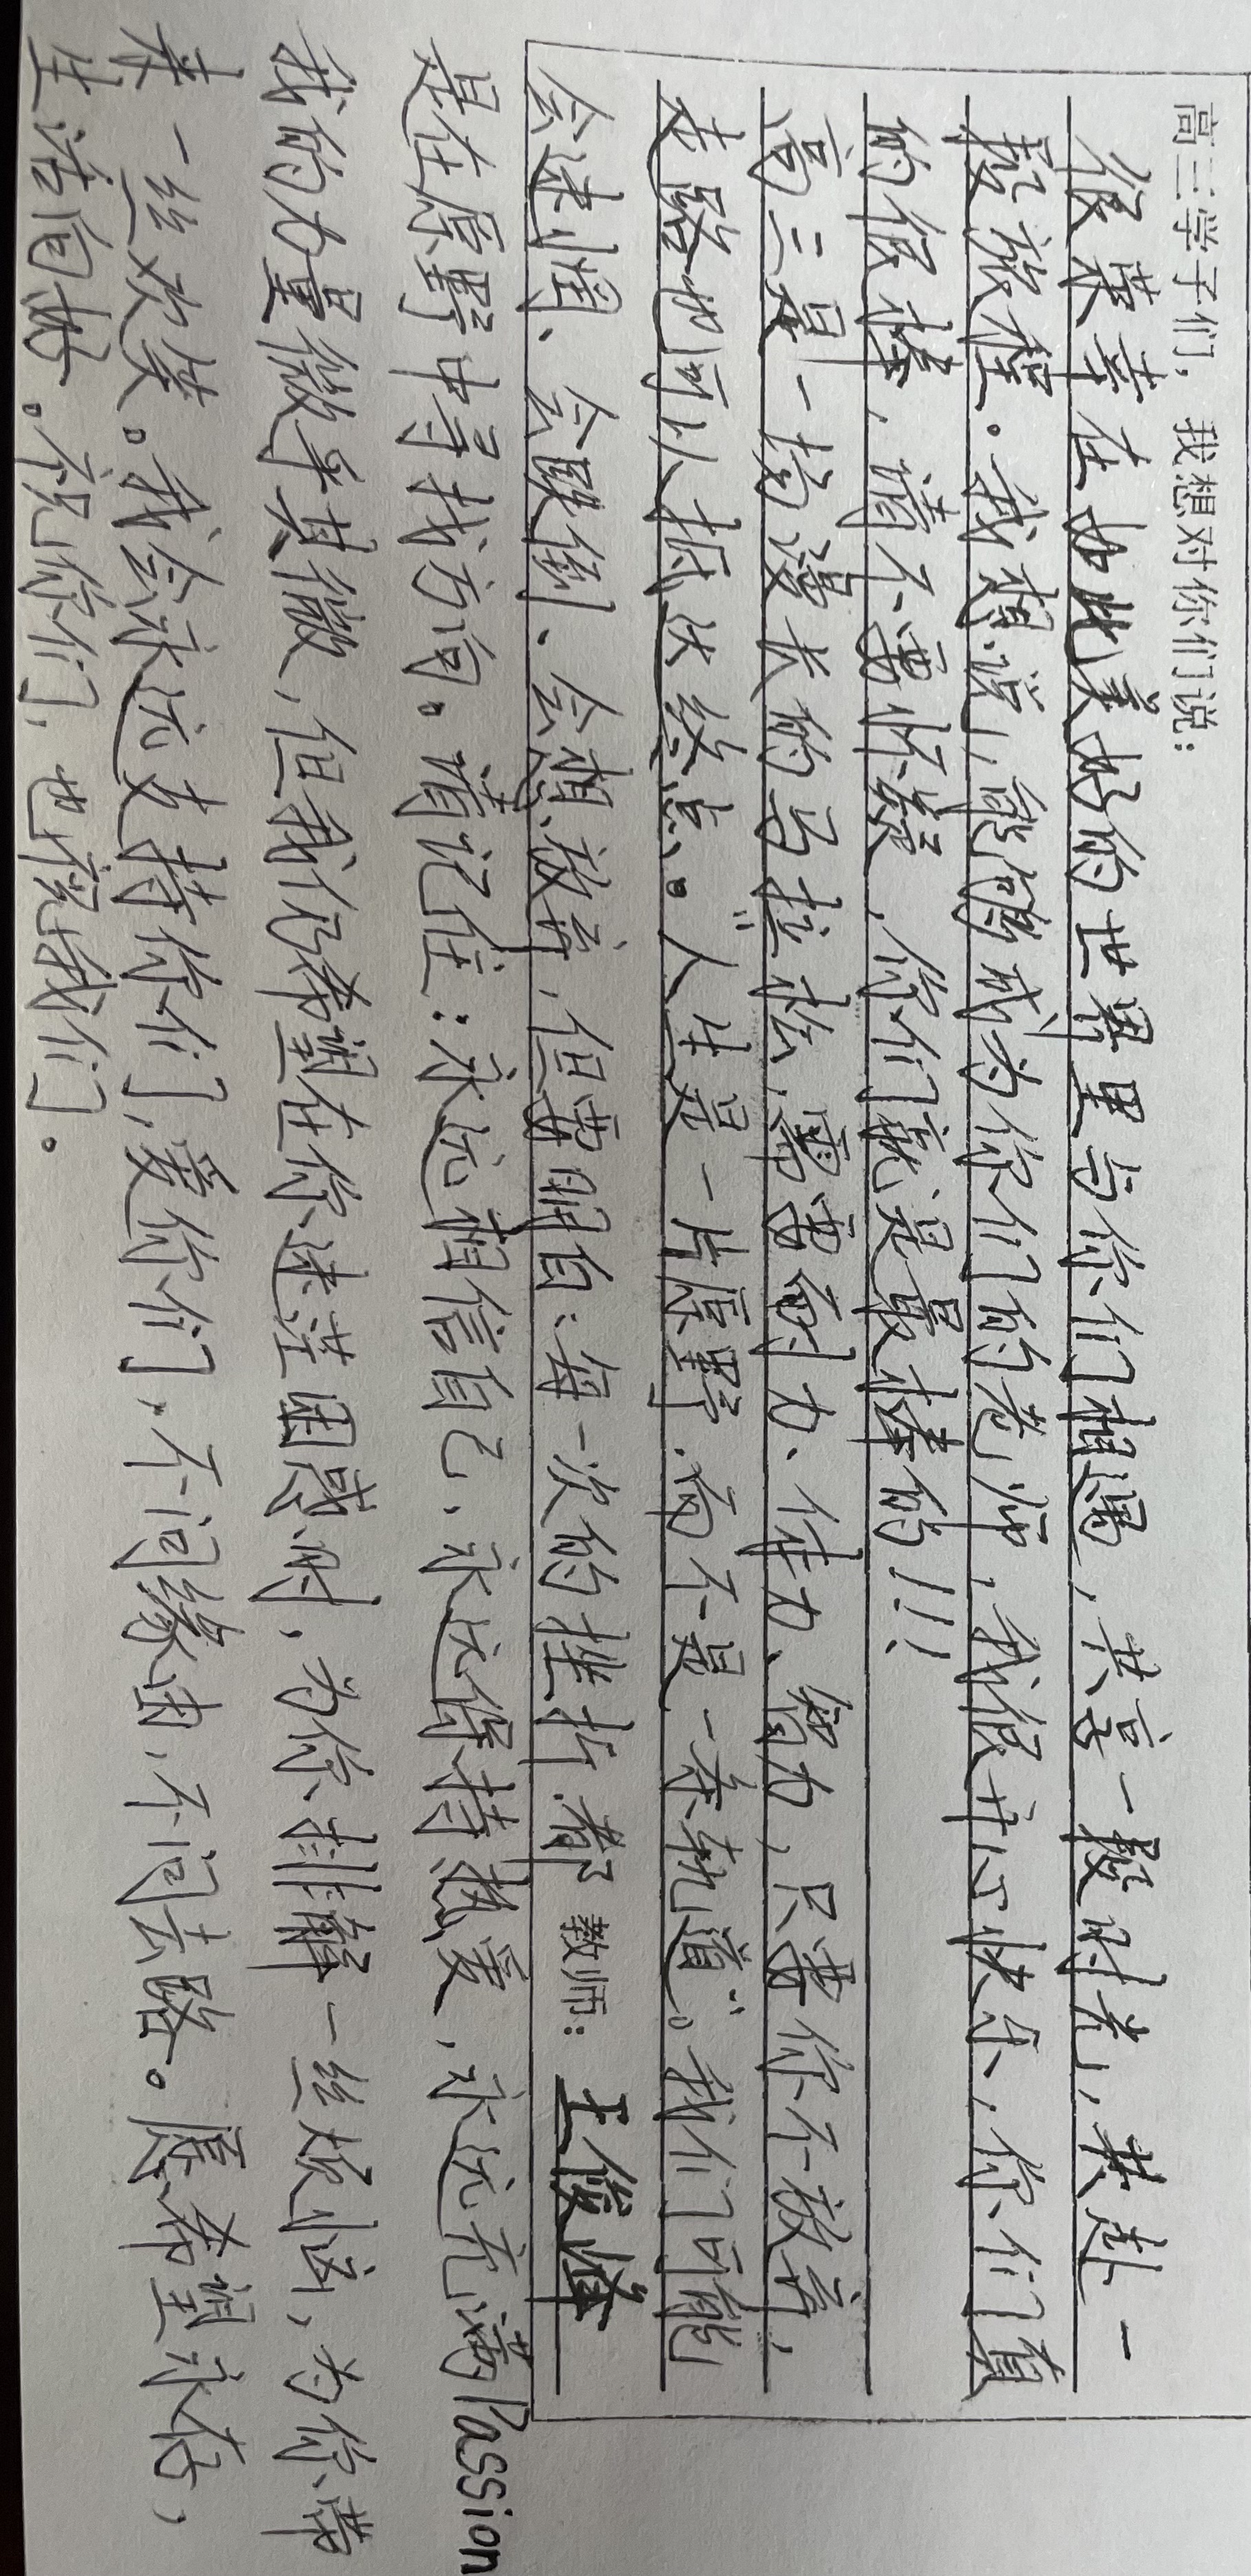 高三学子们，我想对你们说：
很荣幸在如此美好的世界里与你们相遇，共享一段时光，共赴一
段旅程。我想说，能够成为你们的老师，我很开心快乐，你们真
的很棒，请不要怀疑，你们就是最棒的！！！
高三是一场漫长的马拉松，需要耐力、体力、智力，只要你不放弃，
走路也可以抵达终点。“人生是一片原野，而不是一条轨道”。我们可能
会迷惘、会跌倒、会想放弃，但要明白：每一次的挫折，都
教师：王俊峰
是在原野中寻找方向。请记住：永远相信自己，永远保持热爱，永远充满Passion
我的力量微乎其微，但我仍希望在你迷茫困惑时，为你排解一丝烦恼，为你带
来一丝欢笑。我会永远支持你们，爱你们，不问缘由，不问去路。愿希望永存，
生活向好。祝你们，也祝我们。